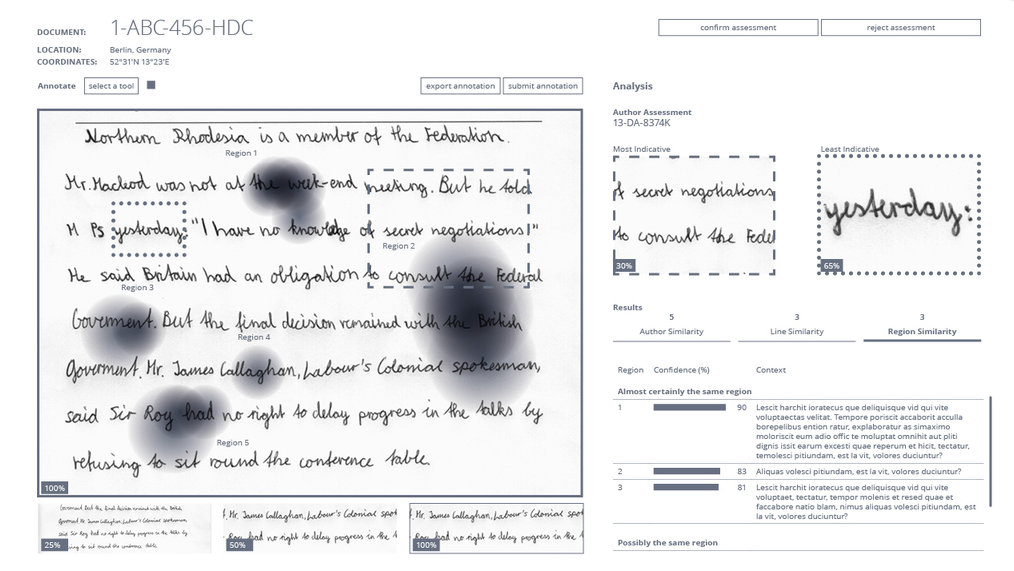 DOCUMENT: 1-ABC-456-HDC
LOCATION: Berlin, Germany
COORDINATES: 52°31'N 13°23'E
confirm assessment
reject assessment
Annotate
select a tool
export annotation
submit annotation
Northern Rhodesia is a member of the Federation.
Region 1
Mr. Macleod was not at the week-end meeting. But he told
M Ps yesterday: "I have no knowledge of secret negotiations!"
Region 2
He said Britain had an obligation to consult the Federal
Region 3
Government. But the final decision remained with the British
Region 4
Government. Mr. James Callaghan, Labour's Colonial spokesman,
said Sir Roy had no right to delay progress in the talks by
Region 5
refusing to sit round the conference table.
100%
Government. But the final decision remained with the British
Government. Mr. James Callaghan, Labour's Colonial spokesman
said Sir Roy had no right to delay progress in the talks by
ing to sit round the conference table.
25%
. Mr. James Callaghan, Labour's Colonial spok
Roy had no right to delay progress in the
50%
. Mr. James Callaghan, Labour's Colonial spok
Roy had no right to delay progress in the
100%
Analysis
Author Assessment
13-DA-8374K
Most Indicative
of secret negotiations
to consult the Fede
30%
Least Indicative
yesterday:
65%
Results
5
Author Similarity
3
Line Similarity
3
Region Similarity
Region Confidence (%) Context
Almost certainly the same region
1 90 Lescit harchit ioratecus que deliquisque vid qui vite
voluptaectas velitat. Tempore poriscit accaborit acculla
borepelibus ention ratur, explaboratur as simaximo
moloriscit eum adio offic te moluptat omnihit aut pliti
dignis issit earum excest quae reperum et hicit, tectatur,
temolessi pitiundam, est la vit, volores duciuntur?
2 83 Aliquas volesci pitiundam, est la vit, volores duciuntur?
3 81 Lescit harchit ioratecus que deliquisque vid qui vite
voluptaet, tectatur, tempor molenis et resed quae et
faccabore natio blam, nimus aliquias volesci pitiundam, est
la vit, volores duciuntur?
Possibly the same region